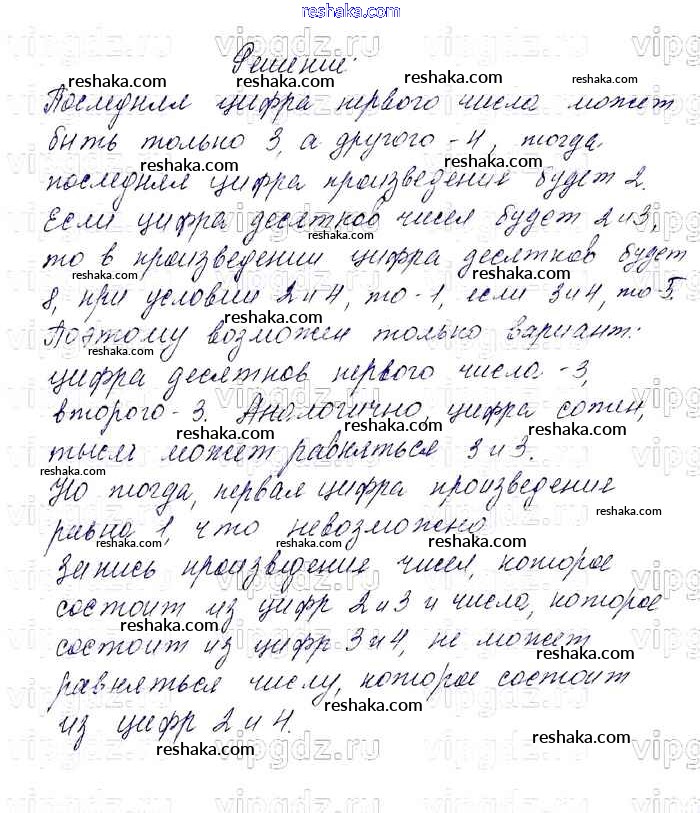 reshaka.com
Решение:
Последняя цифра первого числа может
быть только 3, а другого - 4, тогда
последняя цифра произведения будет 2.
Если цифра десятков чисел будет 2 и 3,
то в произведении цифра десятков будет
8, при условии 2 и 4, то - 1, если 3 и 4, то - 5.
Поэтому возможен только вариант:
цифра десятков первого числа - 3,
второго - 3. Аналогично, цифра сотен,
тысяч может равняться 3 и 3.
Но тогда, первая цифра произведения
равна 1, что невозможно
Запись произведения чисел, которое
состоит из цифр 2 и 3 и числа, которое
состоит из цифр 3 и 4, не может
равняться числу, которое состоит
из цифр 2 и 4.